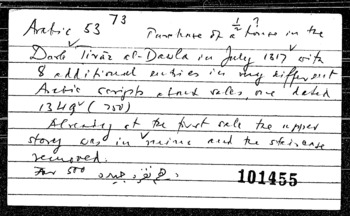 Arabic 53 73
Purchase of a ½ ? house in the
Darb Tirāz al-Dawla in July 1317 with
8 additional entries in very different
Arabic scripts about sales, one dated
1349 (750)
Already at the first sale the upper
story was in ruins and the staircase
removed.
For 500
101455